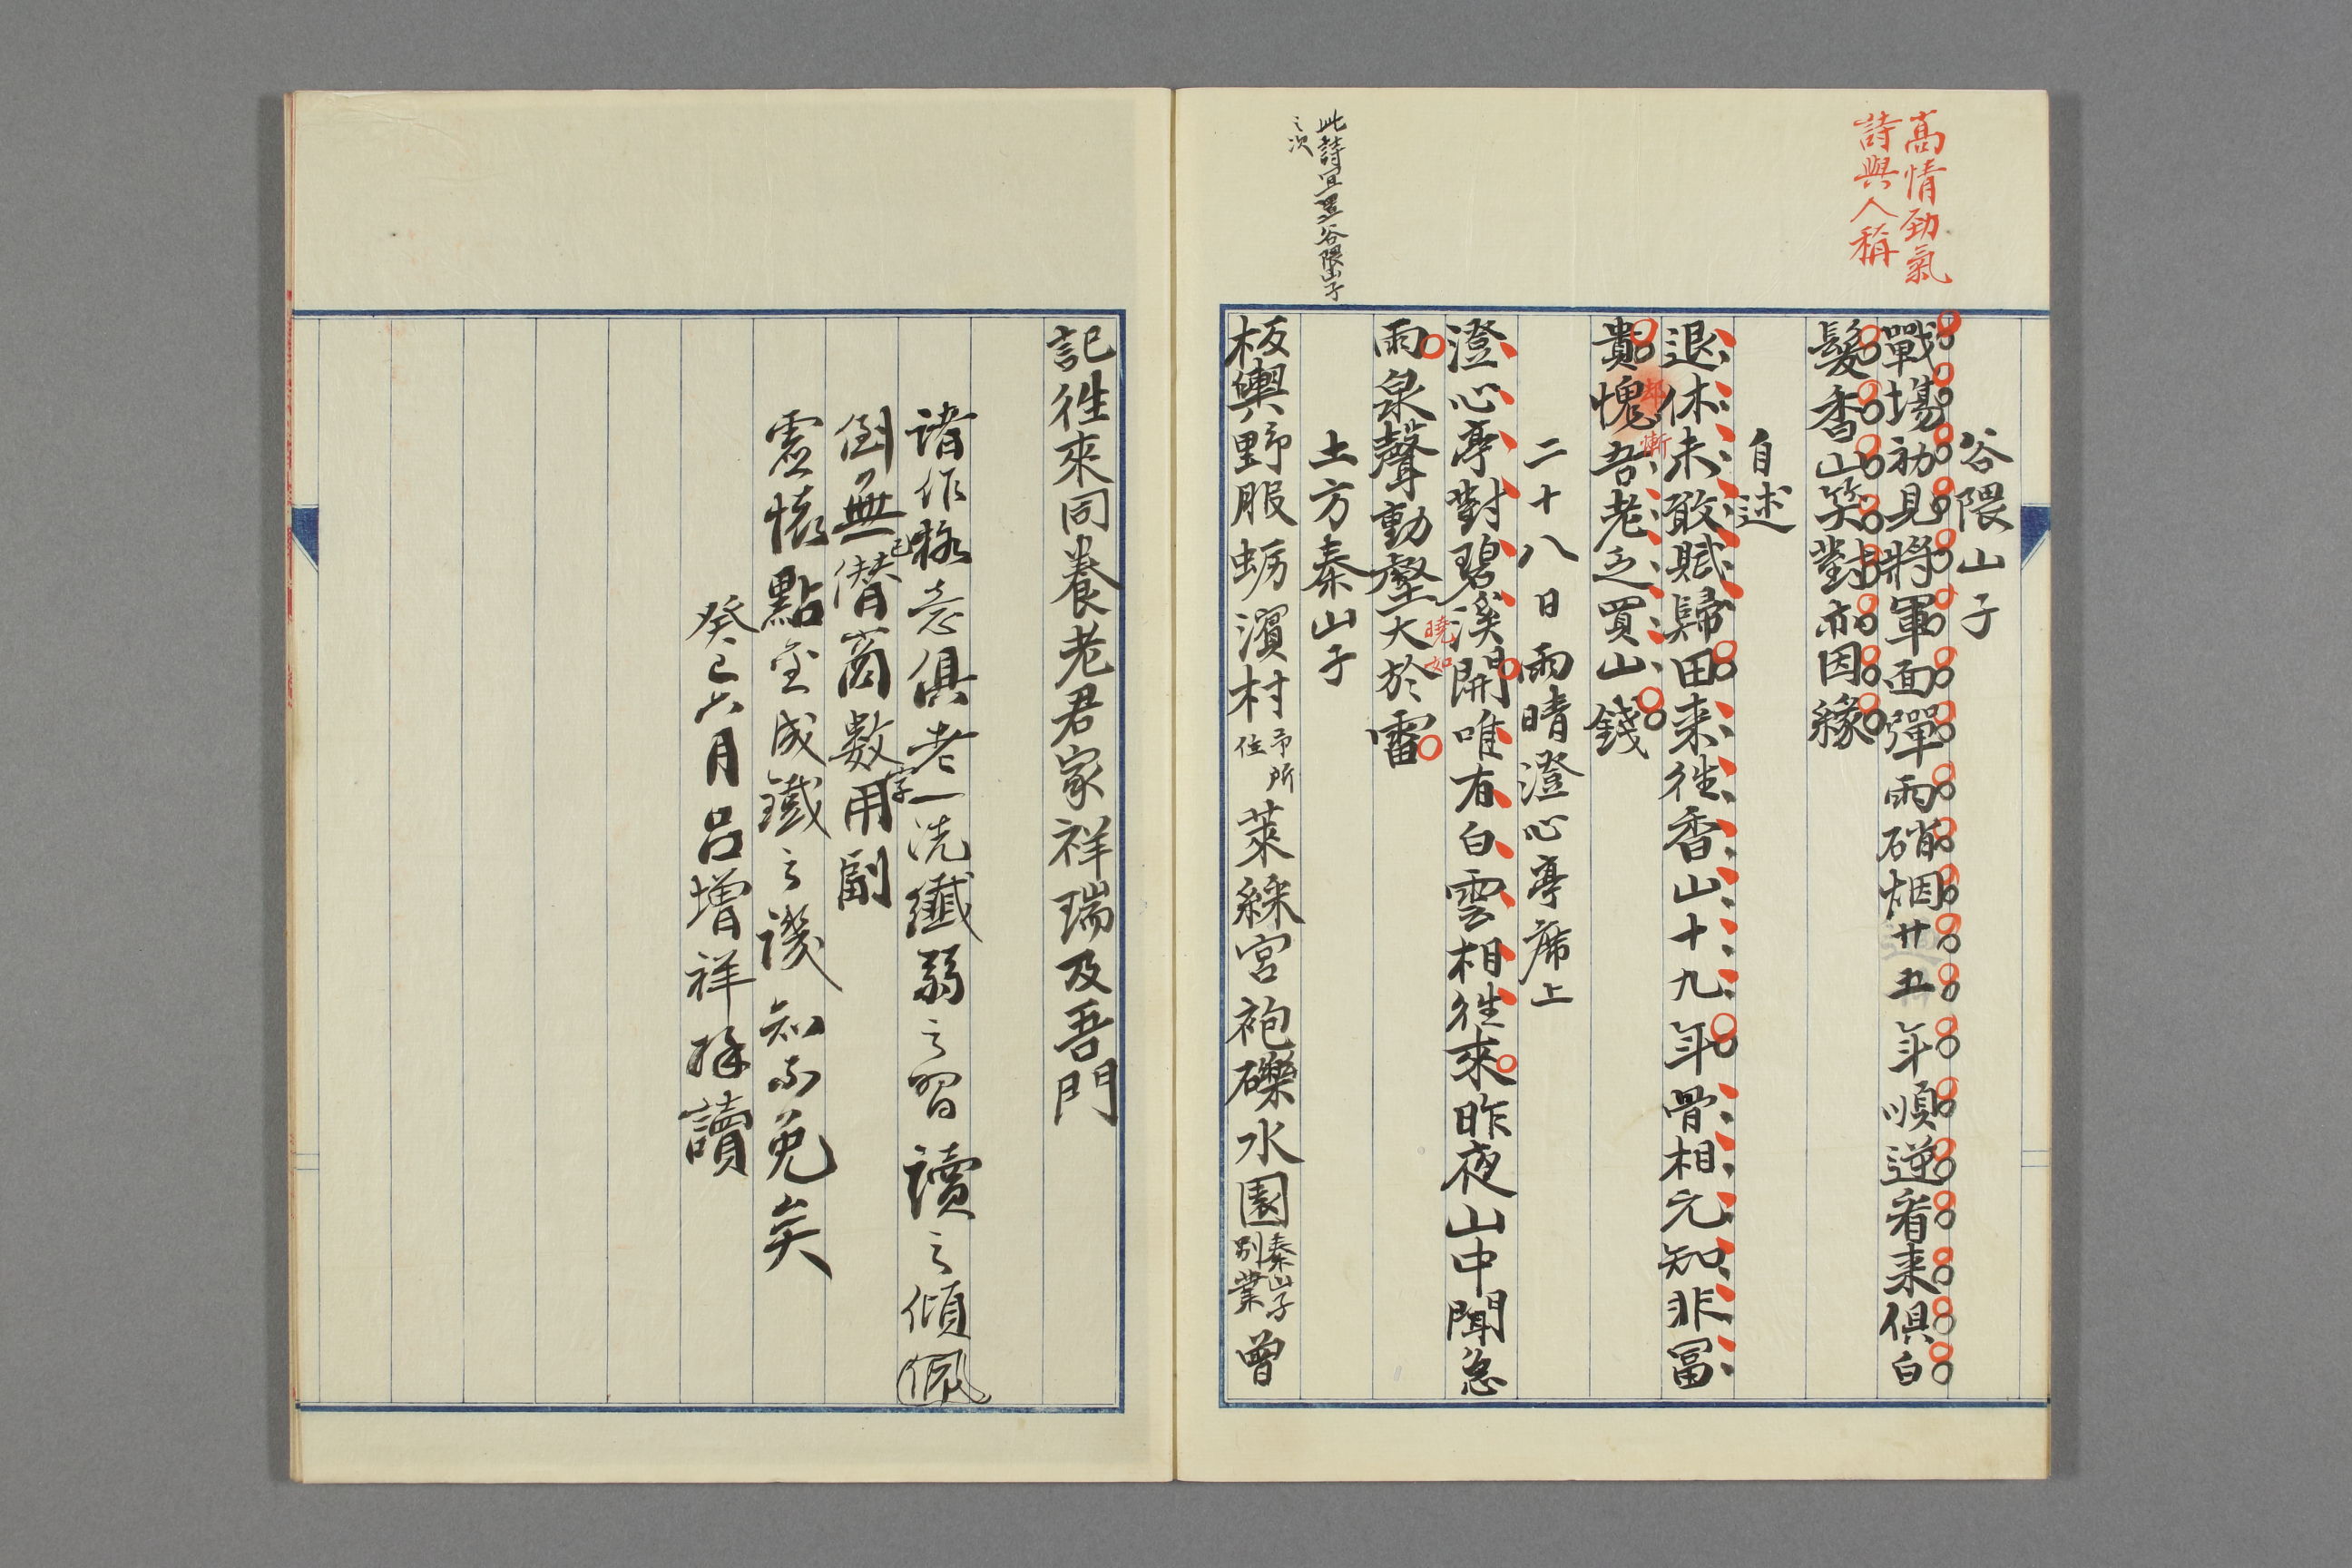 高情勁氣
詩與人稱
谷隈山子
戰場初見將軍面彈雨硝烟廿五年順逆看来俱白
髮香山笑對亦因緣
自述
退休未敢賦歸田来往香山十九年骨相元知非冨
貴愧吾老乏買山錢
却慚
二十八日雨晴澄心亭席上
澄心亭對碧溪開唯有白雲相往來昨夜山中聞急
雨泉聲動壑大於雷
曉如
土方秦山子
此詩宜置谷隈山子
之次
板輿野服蛎濱村予所住萊綵宮袍礫水園秦山子別業曾
記往來同養老君家祥瑞及吾門
諸作格意俱老一洗纖弱之習讀之傾佩
倒無已僭商數字用副
虛懷點金成鐵之譏知不免矣
癸巳六月呂增祥拜讀